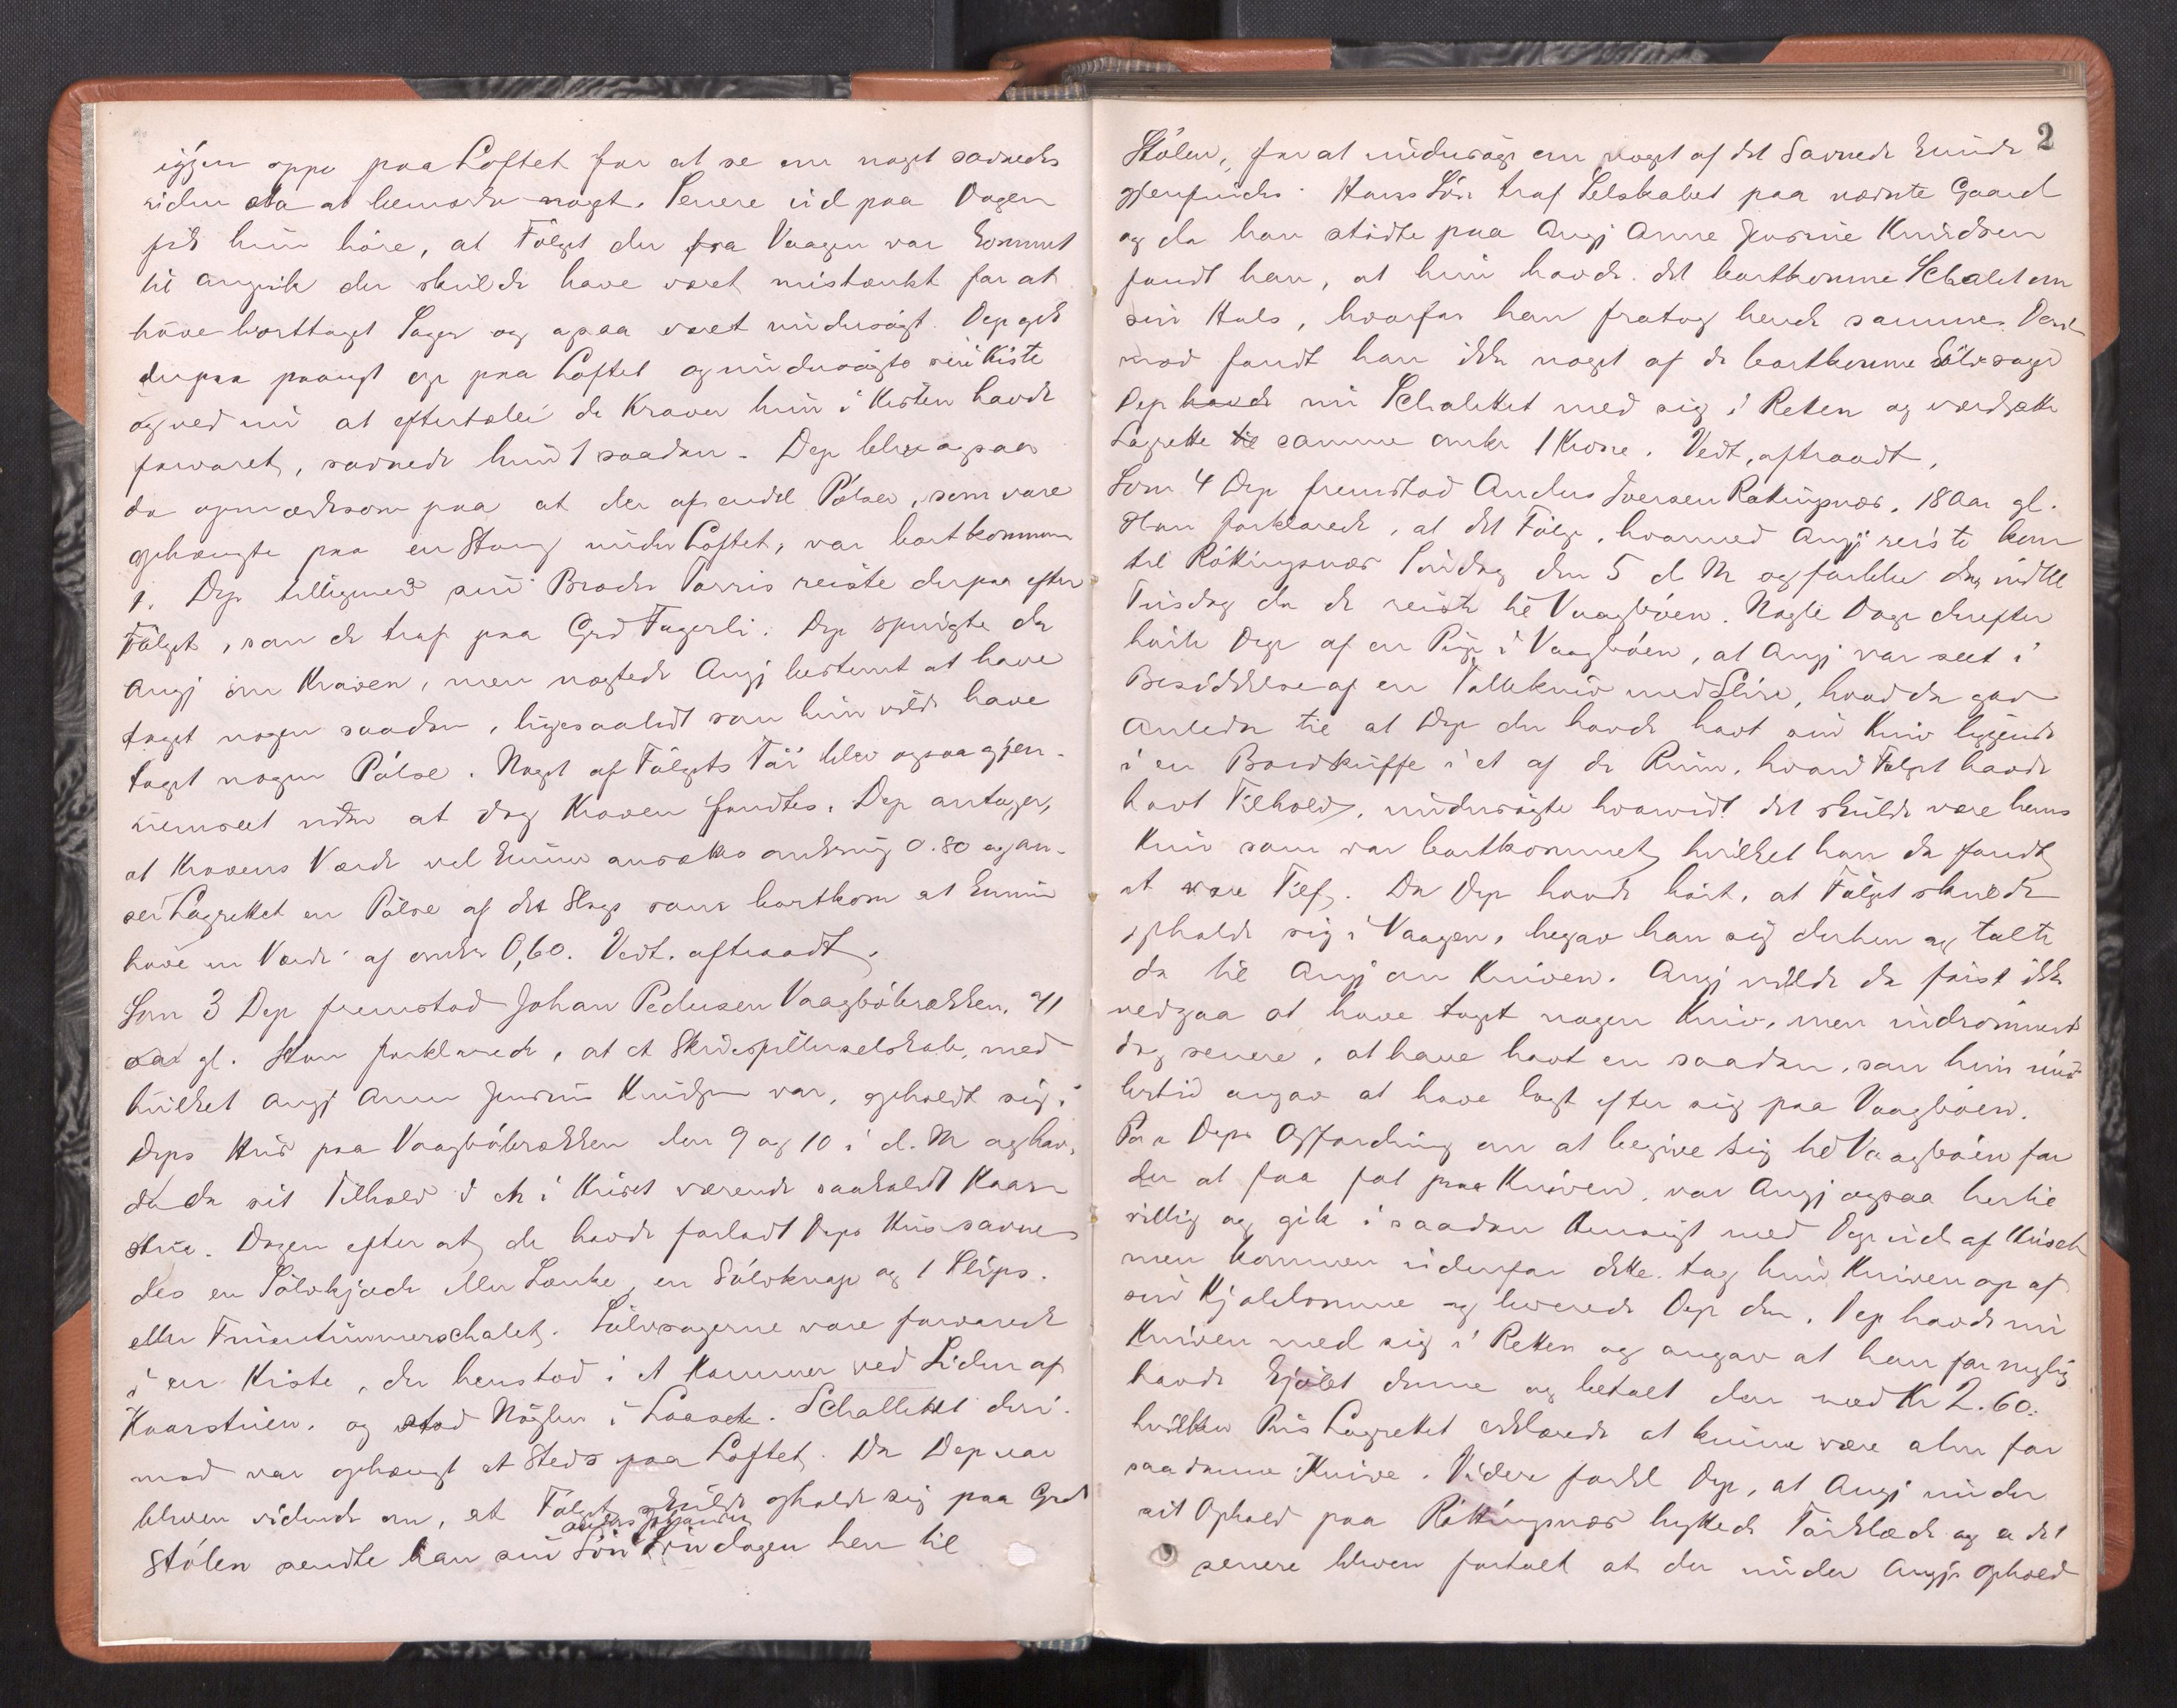 igjen oppe paa Loftet for at se om noget savnedes
uden da at bemærke noget. Senere ud paa Dagen
fik hun høre, at Følget der fra Vaagen var kommet
til Angvik der skulde have været mistænkt for at
have borttaget Sager og ogsaa været undersøgt. Dep gik
derpaa paanyt op paa Loftet og undersøgte sin Kiste
og ved nu at eftertælle de Kraver hun i Kisten havde
forvaret, savnede hun 1 saadan. Dep blev ogsaa
da opmærksom paa at der af endel Pølser, som vare
ophængte paa en Stang under Loftet, var bortkommen
1. Dep tilligemed sin Broder Torris reiste derpaa efter
Følget, som de traf paa Grd Fagerli. Dep spurgte da
Angj om Kraven, men nægtede Angj bestemt at have
taget nogen saadan, ligesaalidt som hun vilde have
taget nogen Pølse. Noget af Følgets Tøi blev ogsaa gjen-
nemseet uden at dog Kraven fandtes. Dep antager,
at Kravens Værdi vel kunne ansættes omkring 0.80 og an-
sei Lagrettet en Pølse af det Slags som bortkom at kunne
have en Værdi af omkr 0,60. Vedt. aftraadt.
Som 3 Dep fremstod Johan Pedersen Vaagbøbrækken, 41
Aar gl. Han forklarede, at et Skuespillerselskab, med
hvilket Angj Anne Jensine Knudsen var, opholdt sig i
Deps Hus paa Vaagbøbrækken den 9 og 10 i d. M og hav-
de da sit Tilhold i et i Huset værende saakaldt Kaars-
stue. Dagen efter at de havde forladt Deps Hus savne-
des en Sølvkjæde eller Lænke, en Sølvknap og 1 Slips
eller Fruentimmerschalet. Sølvsagerne vare forvarede
i en Kiste, der henstod i et Kammer ved Siden af
Kaarstuen, og stod Nøglen i Laaset. Schallettet deri-
mod var ophængt et Steds paa Loftet. Da Dep var
bleven vidende om, at Følget skulde opholde sig paa Grd
Stølen sendte han sin Søn Søndagen hen til
2
Stølen, for at undersøge om noget af det Savnede kunde
gjenfindes. Hans Søn traf Selskabet paa nærmeste Gaard
og da han stødte paa Angj Anne Jensine Knudsen
fandt han, at hun havde det bortkomne Schalet om
sin Hals, hvorfor han fratog hende samme. Deri-
mod fandt han ikke noget af de bortkomne Sølvsager
Dep havde nu Schalettet med sig i Retten og værdsatte
Lagrette til samme omkr 1 Krone. Vedt, aftraadt.
Som 4 Dep fremstod Anders Iversen Røkingsnæs, 18 Aar gl.
Han forklarede, at det Følge, hvormed Angj reiste kom
til Røkingsnæs Søndag den 5 d. M og forblev der indtil
Tirsdag da de reiste til Vaagbøen. Nogle Dage derefter
hørte Dep af en Pige i Vaagbøen, at Angj var seet i
Besiddelse af en Tollekniv med Slire, hvad da gav
Anledn til at Dep der havde havt sin Kniv liggende
i en Bordskuffe i et af de Rum, hvori Følget havde
havt Tilhold, undersøgte hvorvidt det skulde være hans
Kniv som var bortkommet, hvilket han da fandt
at være Tilf. Da Dep havde hørt, at Følget skulde
opholde sig i Vaagen, begav han sig derhen og talte
da til Angj om Kniven. Angj vilde da først ikke
vedgaa at have taget nogen Kniv, men indrømmed
dog senere, at have havt en saadan, som hun imid-
lertid angav at have lagt efter sig paa Vaagbøen.
Paa Deps Opfordring om at begive sig til Vaagbøen for
der at faa fat paa Kniven, var Angj ogsaa hertil
villig og gik i saadan Hensigt med Dep ud af Huset
men kommen udenfor dette, tog hun Kniven op af
sin Kjolelomme og leverede Dep den. Dep havde nu
Kniven med sig i Retten og angav at han for nylig
havde kjøbt denne og betalt den med Kr 2.60.
hvilken Pris Lagrettet erklærede at kunne være alm for
saadanne Knive. Videre forkl Dep, at Angj under
sit Ophold paa Røkkingsnæs byttede Tørklæde og er det
senere bleven fortalt at der under Angjs Ophold